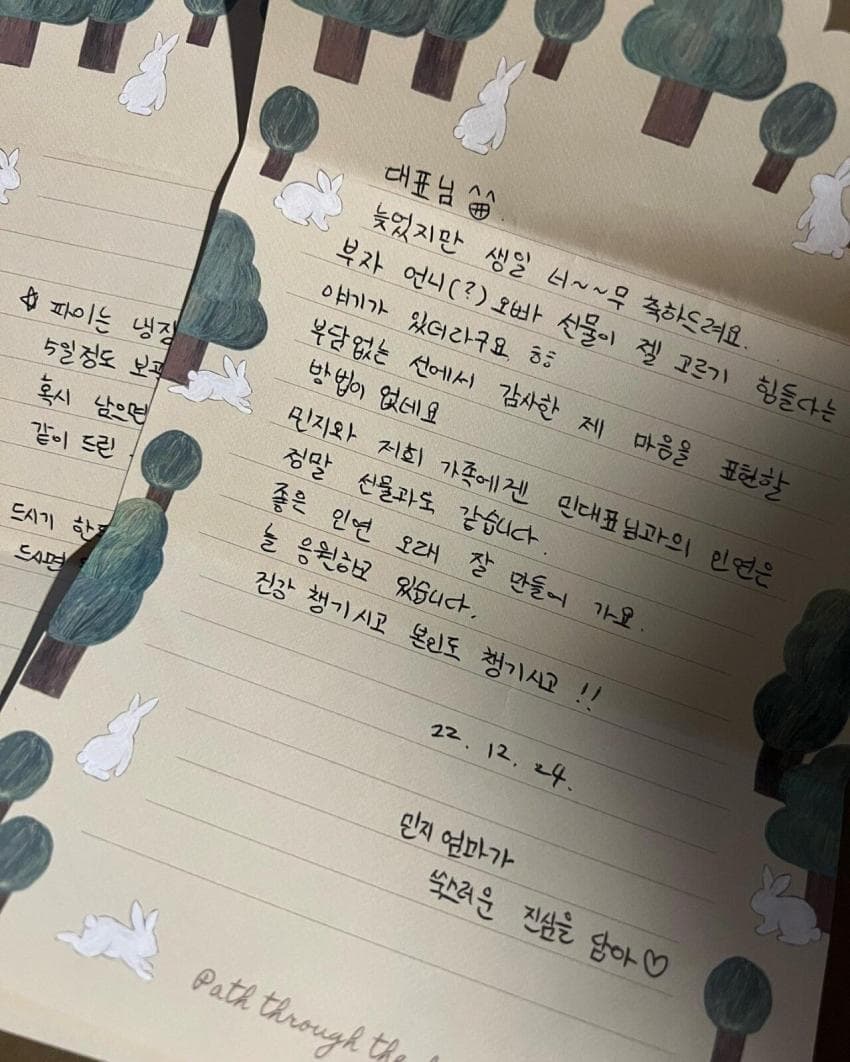 대표님 ^^
늦었지만 생일 너~~무 축하드려요.
부자 언니(?) 오빠 선물이 젤 고르기 힘들다는
얘기가 있더라구요 ㅎㅎ
부담없는 선에서 감사한 제 마음을 표현할
방법이 없네요
민지와 저희 가족에겐 민대표님과의 인연은
정말 선물과도 같습니다.
좋은 인연 오래 잘 만들어 가요.
늘 응원하고 있습니다.
건강 챙기시고 본인도 챙기시고 !!
22. 12. 24.
민지 엄마가
쑥스러운 진심을 담아♡
Path through the
☆ 파이는 냉장
5일정도 보관
혹시 남으면
같이 드린
드시기 한
드시면